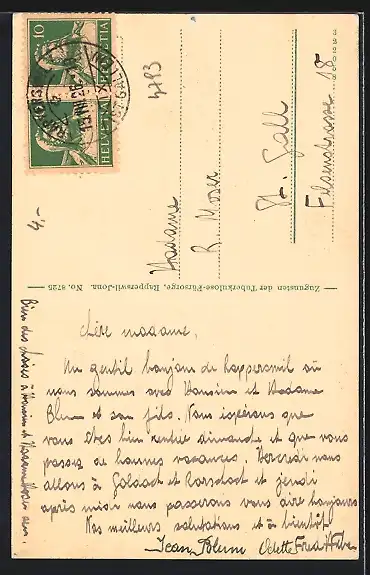 10 HELVETIA
HELVETIA
4793
Madame
R. Moser
St. Gall
Felsenstrasse 18
4,-
Zugunsten der Tuberkulose-Fürsorge, Rapperswil-Jona. No. 8725
Chère madame,
Un gentil bonjour de Rapperswil où
nous sommes avec Monsieur et Madame
Blum et son fils. Nous espérons que
vous êtes bien rentrée dimanche et que vous
passez de bonnes vacances. Mercredi nous
allons à Goldach et Rorschach et jeudi
après midi nous passerons vous dire bonjour
Nos meilleurs salutations et à bientôt
Jean Blum Odette Fred
Bien des choses à Monsieur et